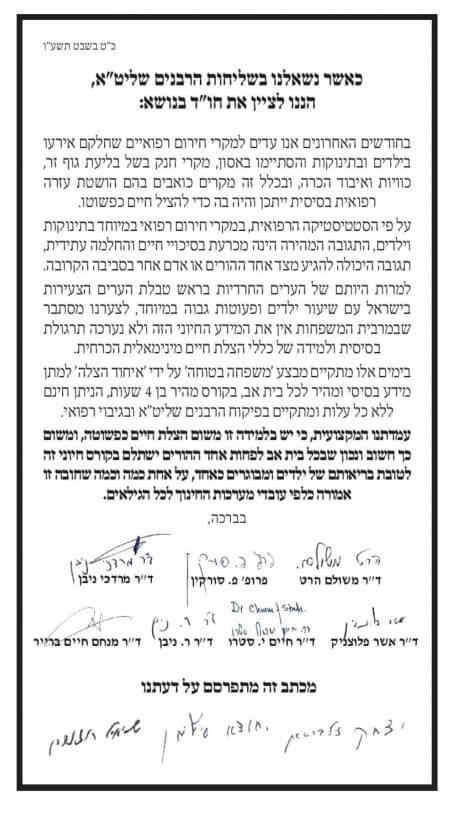 כ"ט בשבט תשע"ו
כאשר נשאלנו בשליחות הרבנים שליט"א,
הננו לציין את חו"ד בנושא:
בחודשים האחרונים אנו עדים למקרי חירום רפואיים שחלקם אירעו
בילדים ובתינוקות והסתיימו באסון, מקרי חנק בשל בליעת גוף זר,
כוויות ואיבוד הכרה, ובכלל זה מקרים כואבים בהם הושטת עזרה
רפואית בסיסית ייתכן והיה בה כדי להציל חיים כפשוטו.
על פי הסטטיסטיקה הרפואית, במקרי חירום רפואי במיוחד בתינוקות
וילדים, התגובה המהירה הינה מכרעת בסיכויי חיים והחלמה עתידית,
תגובה היכולה להגיע מצד אחד ההורים או אדם אחר בסביבה הקרובה.
למרות היותם של הערים החרדיות בראש טבלת הערים הצעירות
בישראל עם שיעור ילדים ופעוטות גבוה במיוחד, לצערנו מסתבר
שבמרבית המשפחות אין את המידע החיוני הזה ולא נערכה תרגולת
בסיסית ולמידה של כללי הצלת חיים מינימאלית הכרחית.
בימים אלו מתקיים מבצע 'משפחה בטוחה' על ידי 'איחוד הצלה' למתן
מידע בסיסי ומהיר לכל בית אב, בקורס מהיר בן 4 שעות, הניתן חינם
ללא כל עלות ומתקיים בפיקוח הרבנים שליט"א ובגיבוי רפואי.
עמדתנו המקצועית, כי יש בלמידה זו משום הצלת חיים כפשוטה, ומשום
כך חשוב ונכון שבכל בית אב לפחות אחד ההורים ישתלם בקורס חיוני זה
לטובת בריאותם של ילדים ומבוגרים כאחד, על אחת כמה וכמה שחובה זו
אמורה כלפי עובדי מערכות החינוך לכל הגילאים.
בברכה,
הרט משולם
ד"ר מרדכי ניבן
ד"ר משולם הרט פרופ' פ. סורקין ד"ר מרדכי ניבן
ד"ר ר. ניבן
ד"ר אשר פלוצניק ד"ר חיים י. סטרו ד"ר ר. ניבן ד"ר מנחם חיים ברייר
מכתב זה מתפרסם על דעתנו